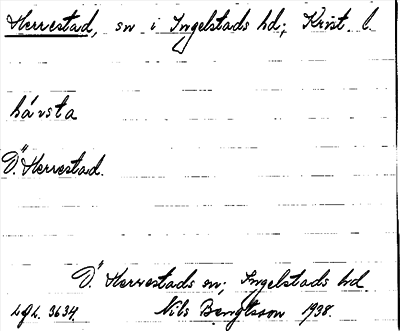 Herrestad, sn i Ingelstads hd; Krist. l.
hávsta
Ö. Herrestad.
Ö. Herrestads sn; Ingelstads hd.
Lgl. 3634. Nils Bengtsson 1938.